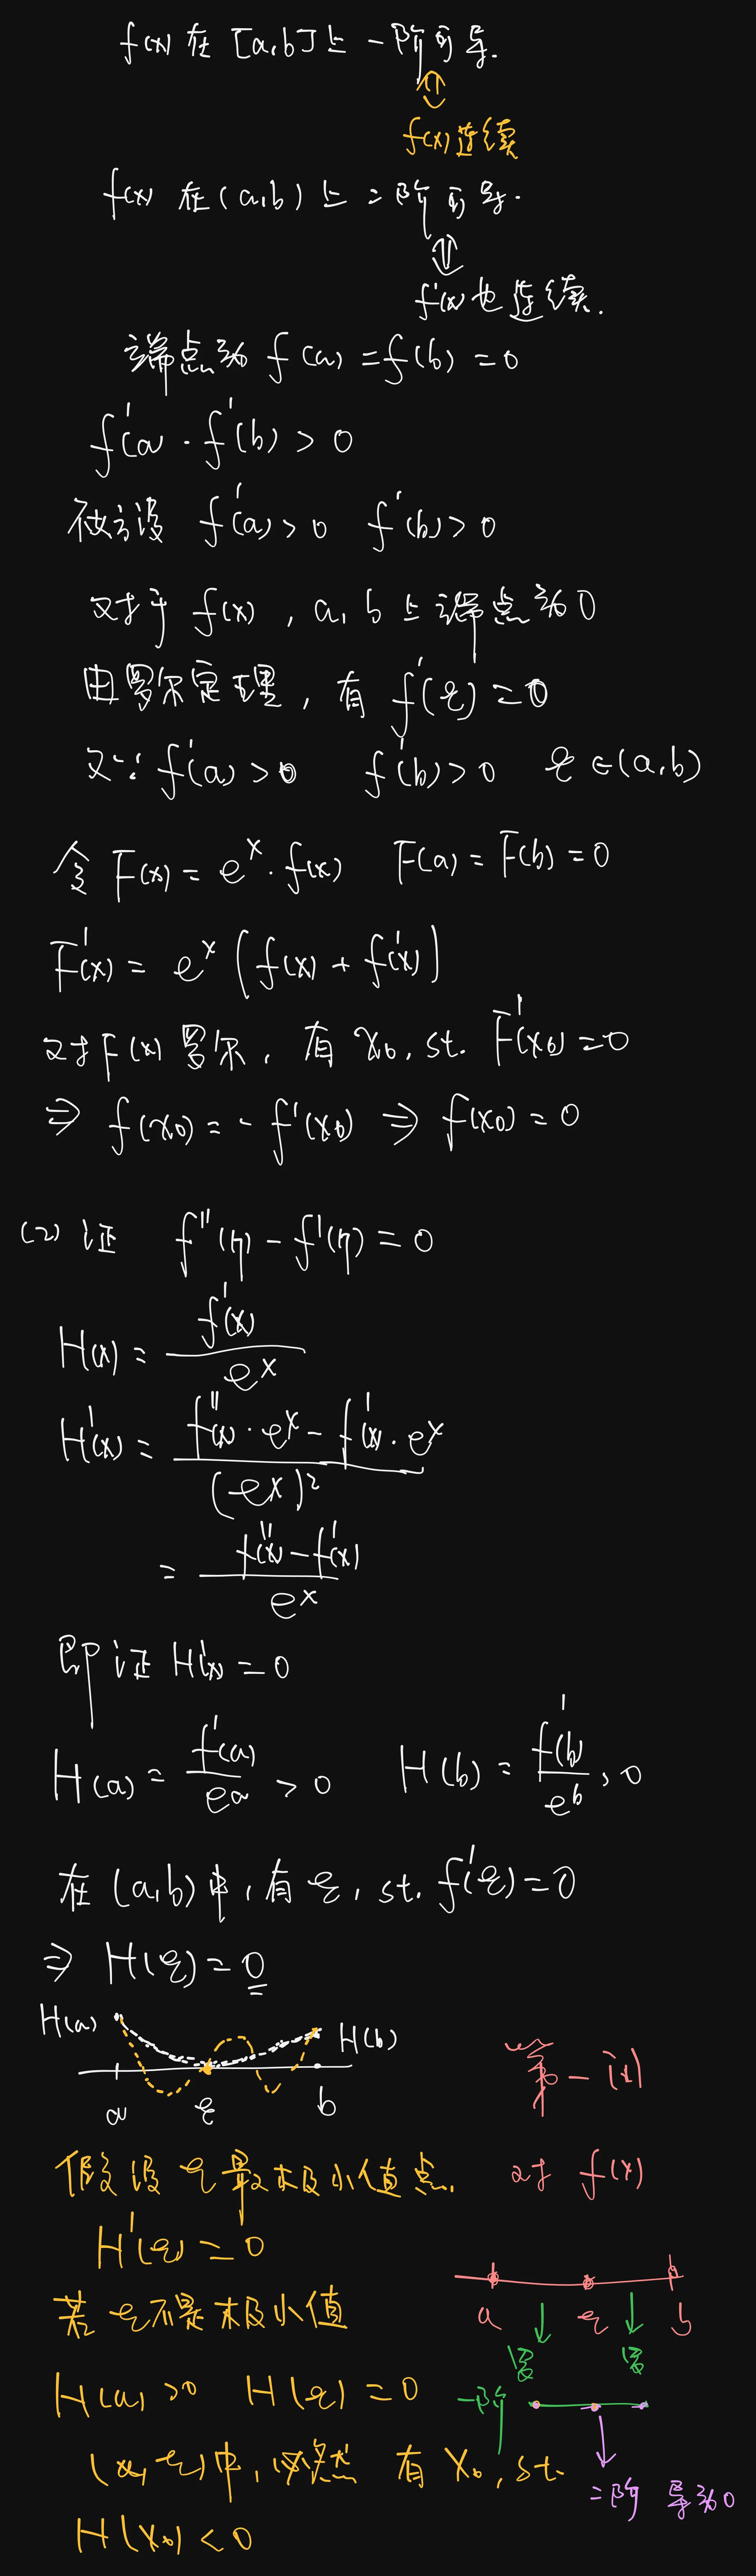 f(x) 在 [a,b] 上一阶可导.
⇕
f(x)连续
f(x) 在 (a,b) 上二阶可导.
⇕
f'(x)也连续.
端点为 f(a) = f(b) = 0
f'(a) · f'(b) > 0
不妨设 f'(a) > 0 f'(b) > 0
对于 f(x) , a, b 上端点为0
由罗尔定理, 有 f'(ξ) = 0
又∵ f'(a) > 0 f'(b) > 0 ξ ∈ (a,b)
令 F(x) = e^x · f(x) F(a) = F(b) = 0
F'(x) = e^x (f(x) + f'(x))
对F(x)罗尔, 有 x₀, st. F'(x₀) = 0
⇒ f(x₀) = - f'(x₀) ⇒ f(x₀) = 0
(2) 证 f''(η) - f'(η) = 0
H(x) = f'(x) / e^x
H'(x) = (f''(x) · e^x - f'(x) · e^x) / (e^x)²
= (f''(x) - f'(x)) / e^x
即证 H'(x) = 0
H(a) = f'(a) / e^a > 0 H(b) = f'(b) / e^b > 0
在 (a,b) 中, 有 ξ, st. f'(ξ) = 0
⇒ H(ξ) = 0
H(a) H(b)
a ξ b
假设 ξ 是极小值点.
H'(ξ) = 0
若 ξ 不是极小值
H(a) > 0 H(ξ) = 0
(a, ξ) 中, 必然有 x₀, st.
H(x₀) < 0
第一问
对 f(x)
a ξ b
罗 罗
一阶
二阶导为0